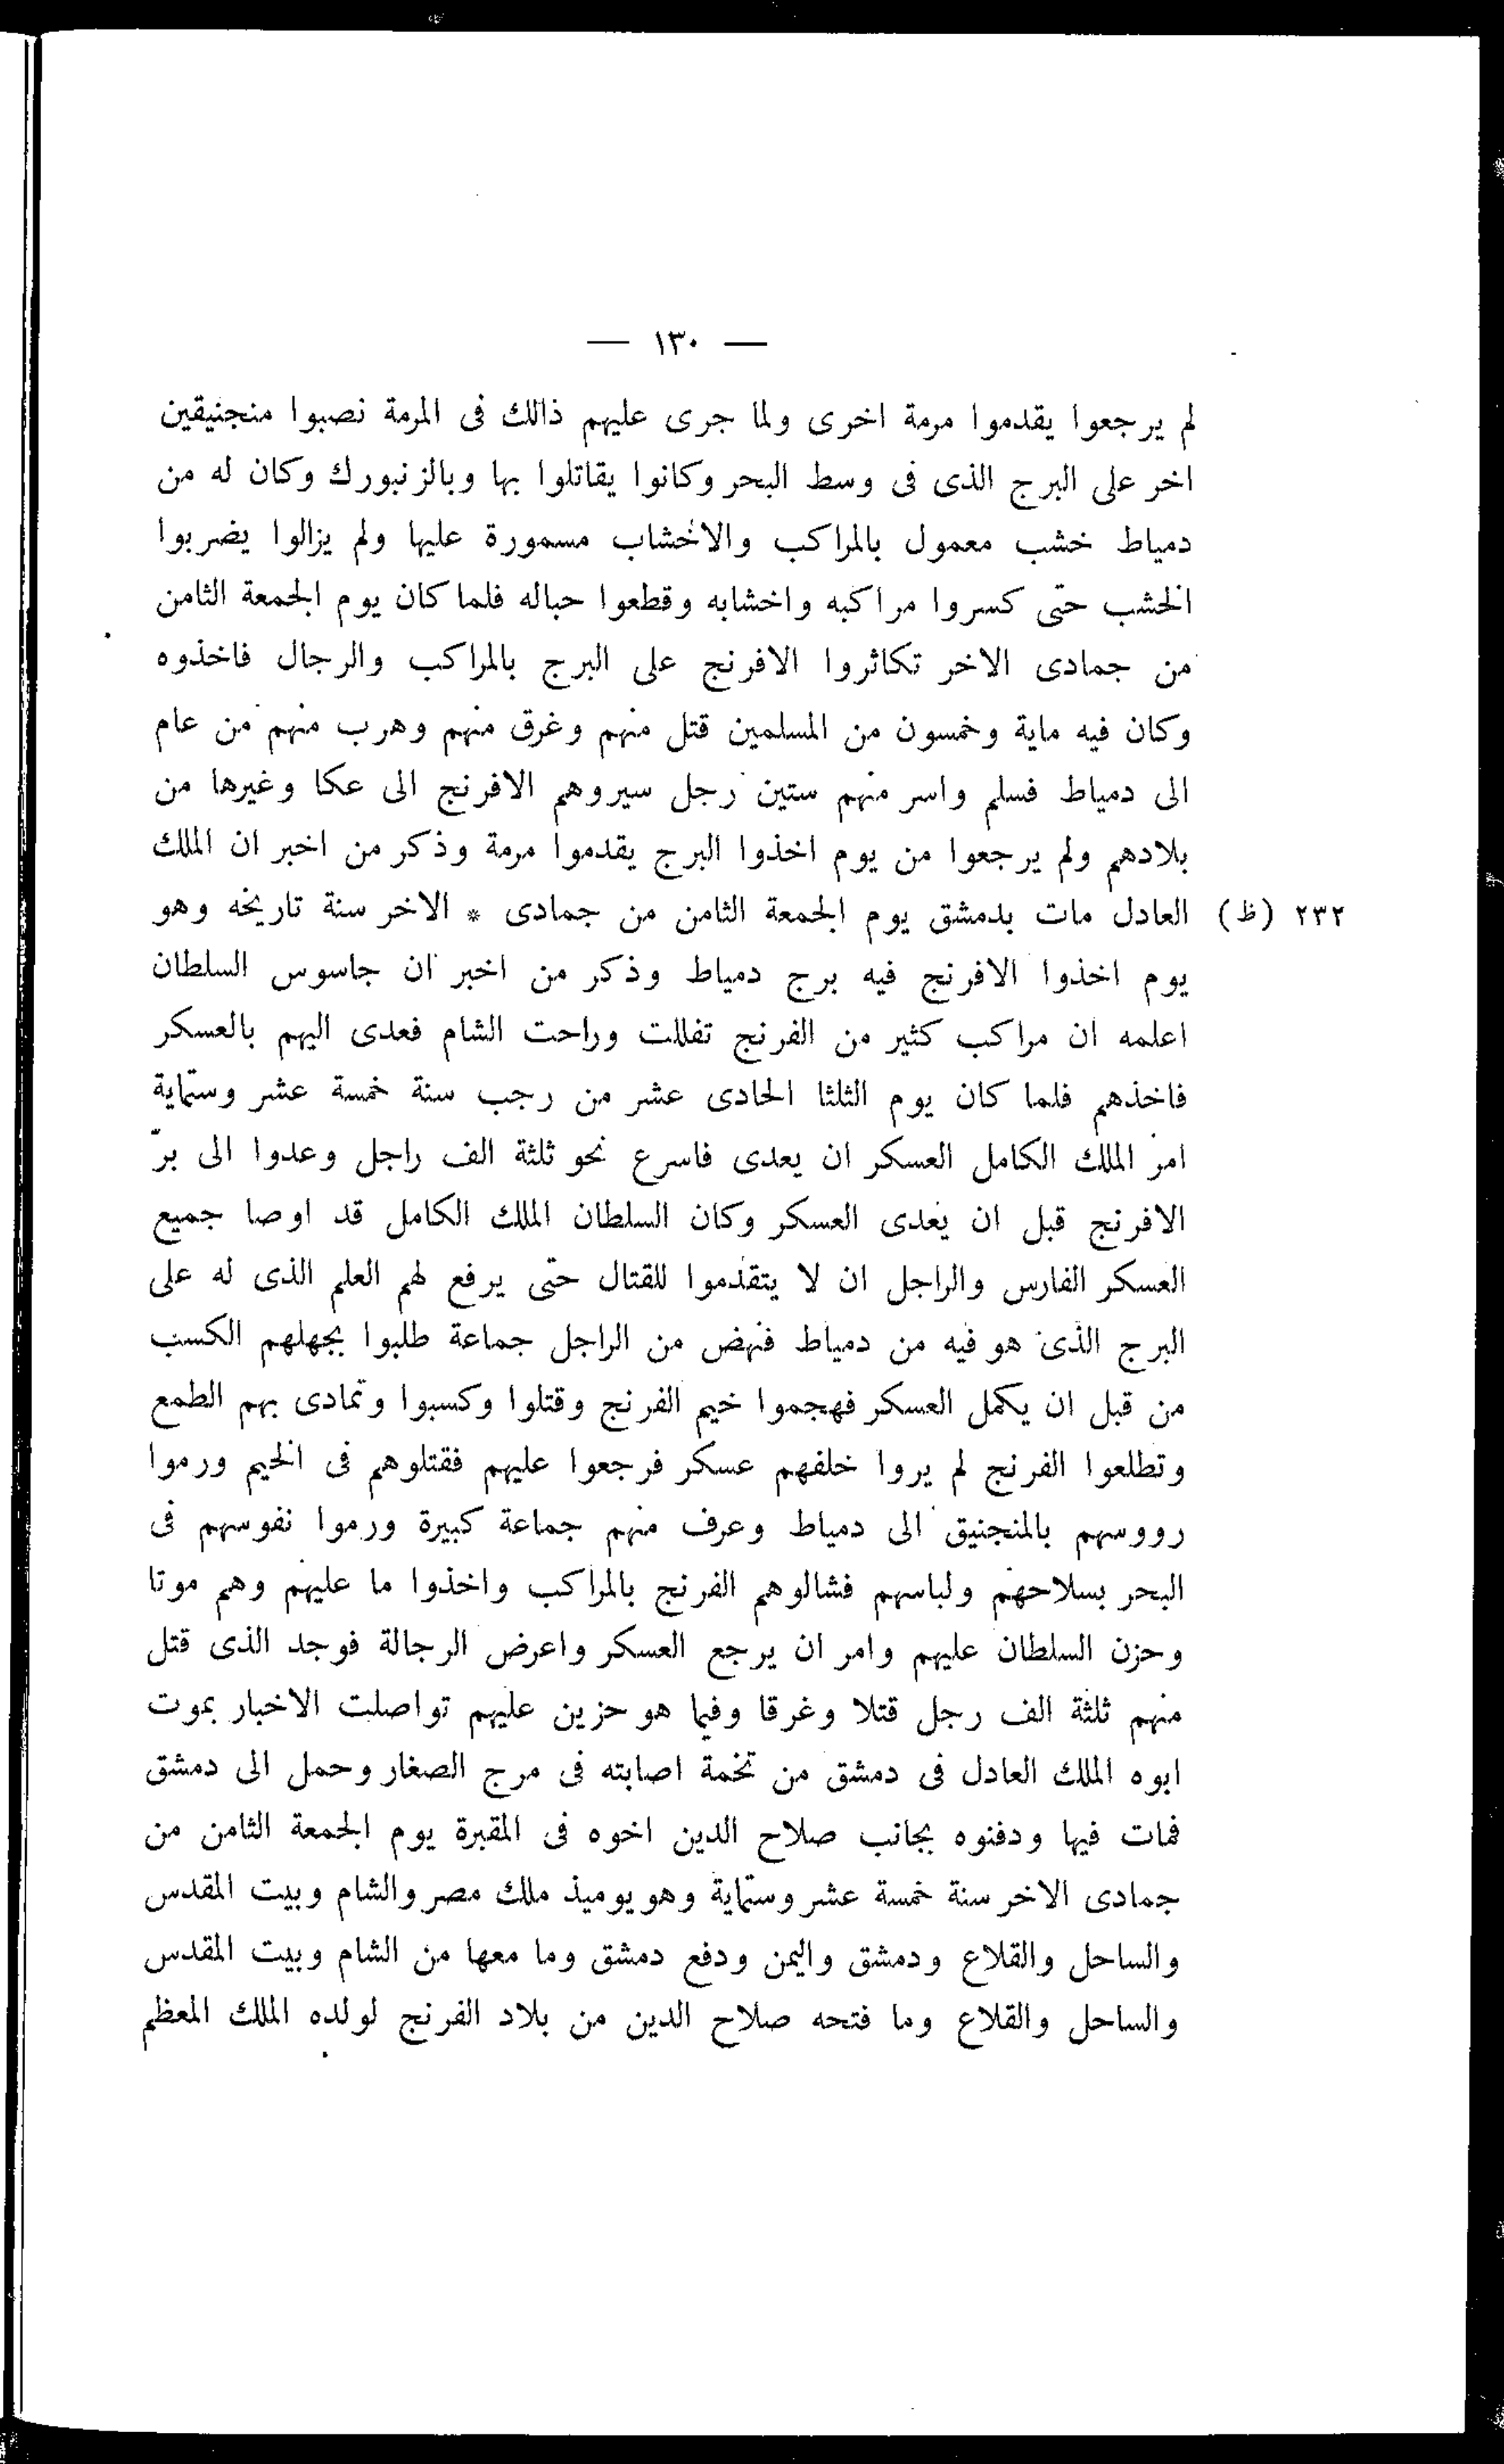 — ١٣٠ —
لم يرجعوا يقدموا مرمة اخرى ولما جرى عليهم ذالك فى المرمة نصبوا منجنيقين
اخر على البرج الذى فى وسط البحر وكانوا يقاتلوا بها وبالزنبورك وكان له من
دمياط خشب معمول بالمراكب والاخشاب مسمورة عليها ولم يزالوا يضربوا
الخشب حتى كسروا مراكبه واخشابه وقطعوا حباله فلما كان يوم الجمعة الثامن
من جمادى الاخر تكاثروا الافرنج على البرج بالمراكب والرجال فاخذوه
وكان فيه ماية وخمسون من المسلمين قتل منهم وغرق منهم وهرب منهم من عام
الى دمياط فسلم واسر منهم ستين رجل سيروهم الافرنج الى عكا وغيرها من
بلادهم ولم يرجعوا من يوم اخذوا البرج يقدموا مرمة وذكر من اخبر ان الملك
٢٣٢ (ظ) العادل مات بدمشق يوم الجمعة الثامن من جمادى * الاخر سنة تاريخه وهو
يوم اخذوا الافرنج فيه برج دمياط وذكر من اخبر ان جاسوس السلطان
اعلمه ان مراكب كثير من الفرنج تفللت وراحت الشام فعدى اليهم بالعسكر
فاخذهم فلما كان يوم الثلثا الحادى عشر من رجب سنة خمسة عشر وستماية
امر الملك الكامل العسكر ان يعدى فاسرع نحو ثلثة الف راجل وعدوا الى برّ
الافرنج قبل ان يعدى العسكر وكان السلطان الملك الكامل قد اوصا جميع
العسكر الفارس والراجل ان لا يتقدموا للقتال حتى يرفع لهم العلم الذى له على
البرج الذى هو فيه من دمياط فنهض من الراجل جماعة طلبوا بجهلهم الكسب
من قبل ان يكمل العسكر فهجموا خيم الفرنج وقتلوا وكسبوا وتمادى بهم الطمع
وتطلعوا الفرنج لم يروا خلفهم عسكر فرجعوا عليهم فقتلوهم فى الخيم ورموا
رووسهم بالمنجنيق الى دمياط وعرف منهم جماعة كبيرة ورموا نفوسهم فى
البحر بسلاحهم ولباسهم فشالوهم الفرنج بالمراكب واخذوا ما عليهم وهم موتا
وحزن السلطان عليهم وامر ان يرجع العسكر واعرض الرجالة فوجد الذى قتل
منهم ثلثة الف رجل قتلا وغرقا وفيما هو حزين عليهم تواصلت الاخبار بموت
ابوه الملك العادل فى دمشق من تخمة اصابته فى مرج الصغار وحمل الى دمشق
فمات فيها ودفنوه بجانب صلاح الدين اخوه فى المقبرة يوم الجمعة الثامن من
جمادى الاخر سنة خمسة عشر وستماية وهو يوميذ ملك مصر والشام وبيت المقدس
والساحل والقلاع ودمشق واليمن ودفع دمشق وما معها من الشام وبيت المقدس
والساحل والقلاع وما فتحه صلاح الدين من بلاد الفرنج لولده الملك المعظم